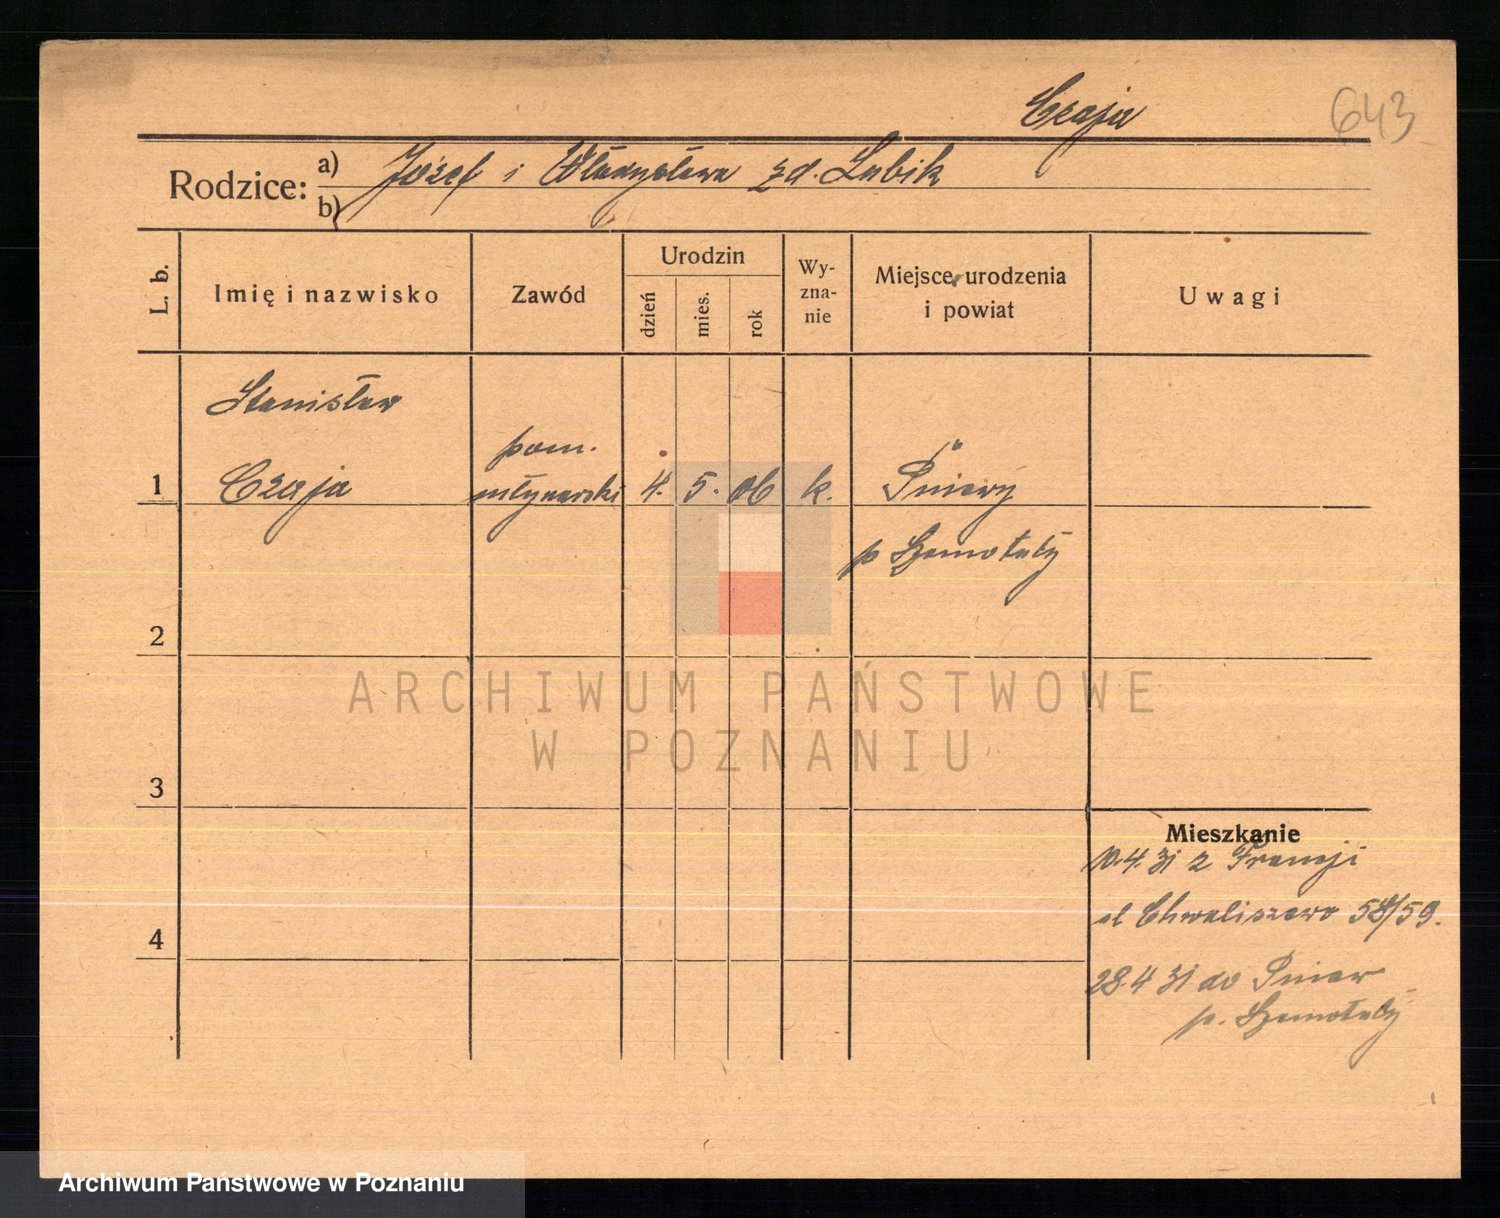 Czaja
643
Rodzice: a) Józef i Władysława zd. Lubik
b)
L. b.
Imię i nazwisko
Zawód
Urodzin
dzień
mies.
rok
Wy-
zna-
nie
Miejsce urodzenia
i powiat
Uwagi
Stanisław
pom.
1 Czaja młynarski 4. 5. 06 k. Pniewy
p Szamotuły
2
ARCHIWUM PAŃSTWOWE
W POZNANIU
3
Mieszkanie
10.4.31 z Francji
ul Chwaliszewo 58/59.
4
28.4 31 do Pniew
p. Szamotuły
Archiwum Państwowe w Poznaniu